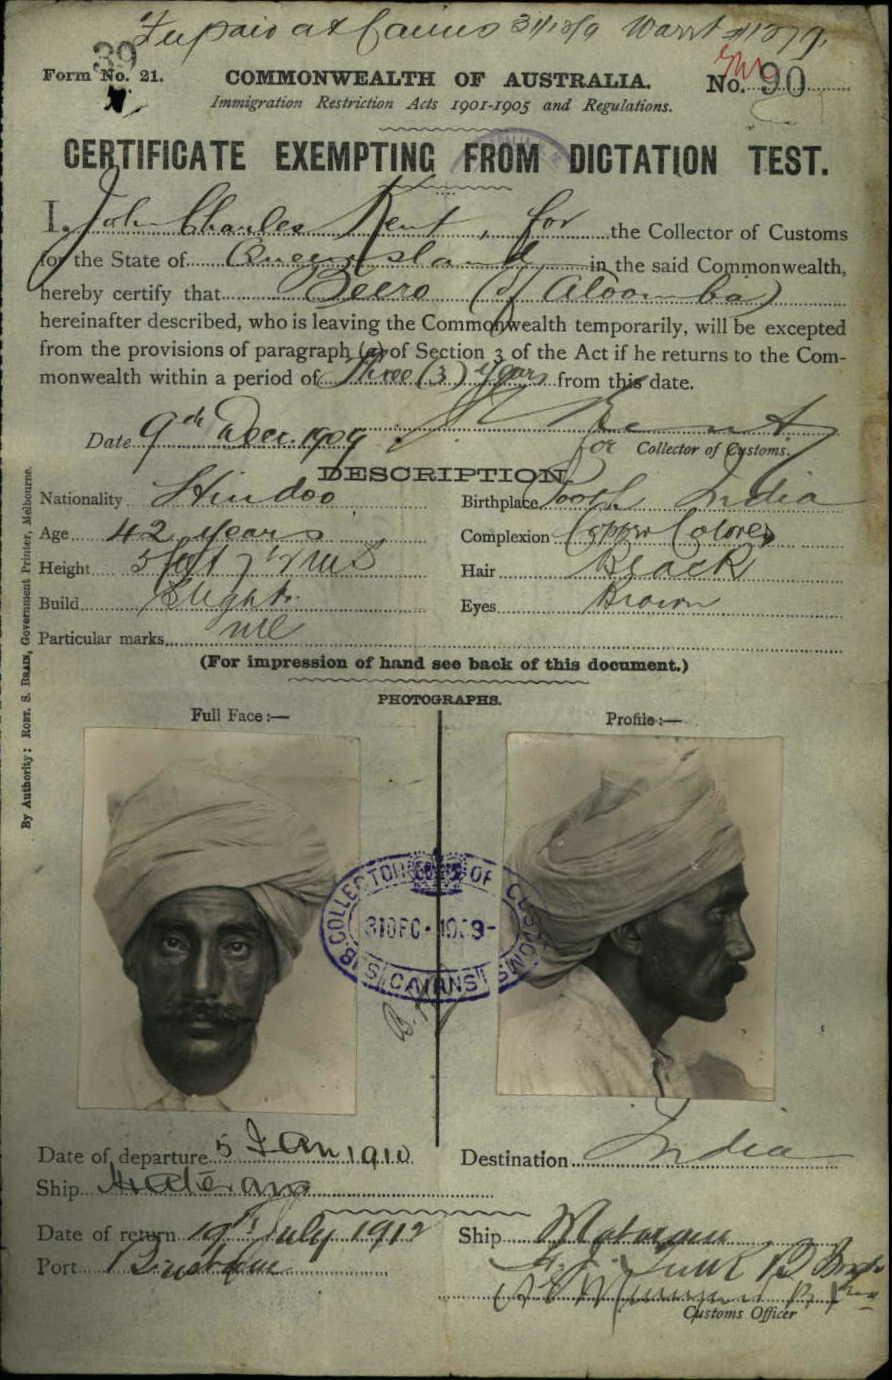 paid at Cairns 31/12/9 Warrt
39
Form No. 21.
COMMONWEALTH OF AUSTRALIA.
No. 90
Immigration Restriction Acts 1901-1905 and Regulations.
CERTIFICATE EXEMPTING FROM DICTATION TEST.
I, John Charles Kent, for the Collector of Customs
for the State of Queensland in the said Commonwealth,
hereby certify that Beero (of Aloomba)
hereinafter described, who is leaving the Commonwealth temporarily, will be excepted
from the provisions of paragraph (a) of Section 3 of the Act if he returns to the Com-
monwealth within a period of Three (3) years from this date.
Date 9th Decr. 1909 Kent
for Collector of Customs.
DESCRIPTION.
Nationality Hindoo Birthplace India
Age 42 years Complexion Copper Colored
Height 5 feet 7 1/2 ins Hair Black
Build Slight Eyes Brown
Particular marks nil
(For impression of hand see back of this document.)
PHOTOGRAPHS.
Full Face:— Profile:—
COLLECTOR OF CUSTOMS
31 DEC 1909
CAIRNS
Date of departure 5 Jan 1910 Destination India
Ship
Date of return 19th July 1912 Ship Mataram
Port Brisbane
Customs Officer
By Authority: ROBT. S. BRAIN, Government Printer, Melbourne.